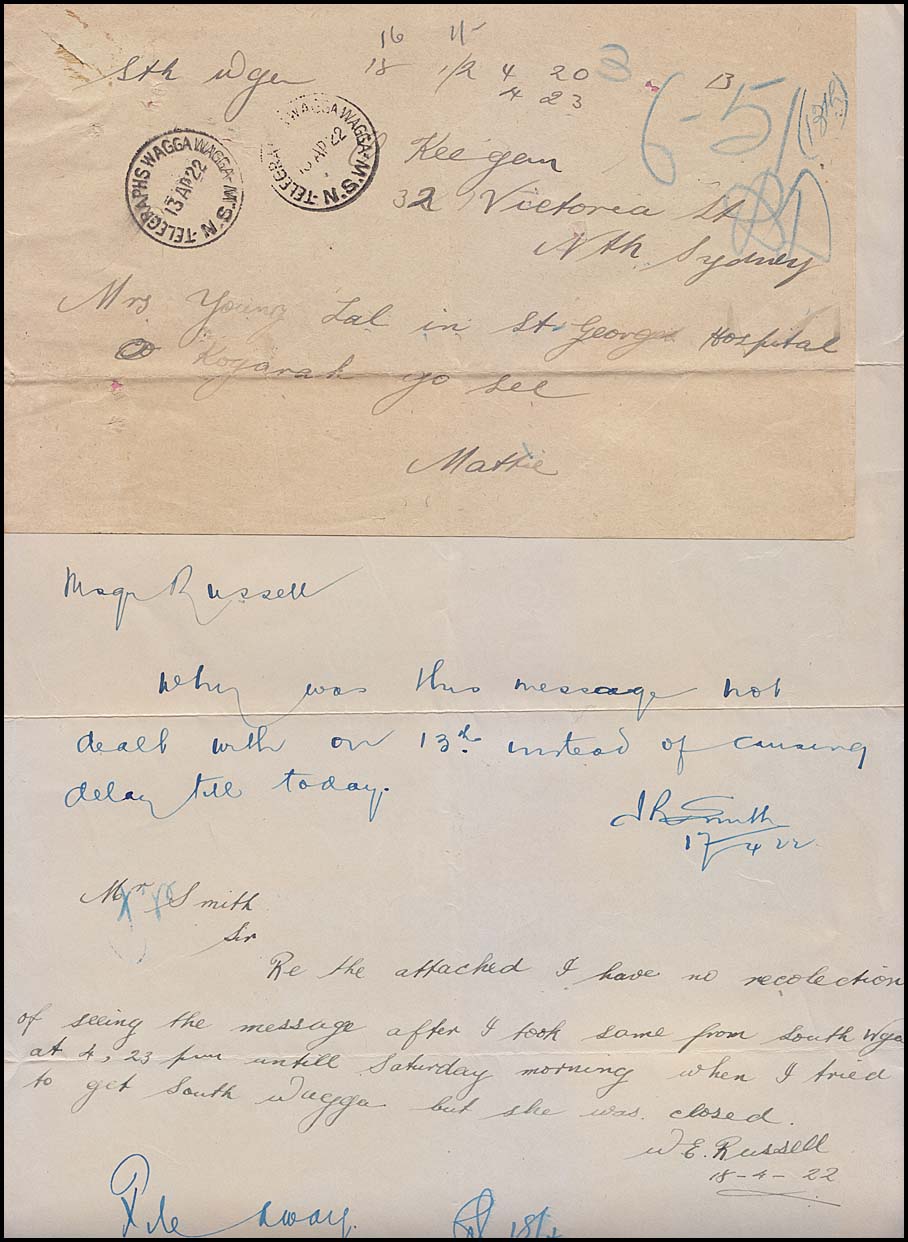 16 15
Sth Wga 18 1/2 4 20
4 23
13
6-5/
TELEGRAPHS WAGGA WAGGA N.S.W
13 AP 22
TELEGRAPHS WAGGA WAGGA N.S.W
13 AP 22
Keegan
32 Victoria St
Nth Sydney
Mrs Young Lal in St George Hospital
Kogarah go see
Mattie
Russell
Why was this message not
dealt with on 13th instead of causing
delay till today.
J B Smith
17/4 22
Mr Smith
Sir
Re the attached I have no recolection
of seeing the message after I took same from South Wga
at 4,23 pm untill Saturday morning when I tried
to get South Wagga but she was closed.
W.E. Russell
18-4-22
File away.